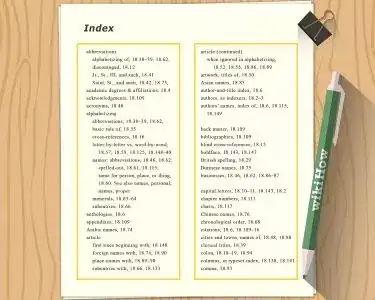 Index
abbreviations
alphabetizing of, 18.38–39, 18.62,
discouraged, 18.12
Jr., Sr., III, and such, 18.41
Saint, St., and unit, 18.42, 18.73,
academic degrees & affiliations, 18.4
acknowledgments, 18.109
acronyms, 18.46
alphabetizing
abbreviations, 18.38–39, 18.62,
basic rule of, 18.55
cross-references, 18.16
letter-by-letter vs. word-by-word,
18.57, 18.59, 18.125, 18.148–49
names: abbreviations, 18.46, 18.62,
spelled-out, 18.61, 18.115,
same for person, place, or thing,
18.60. See also names, personal,
names, proper
numerals, 18.63–64
subentries, 18.66
anthologies, 18.6
appendixes, 18.109
Arabic names, 18.74
article
first lines beginning with, 18.148
foreign names with, 18.74, 18.90
place names with, 18.89–90
subentries with, 18.66, 18.133
article (continued)
when ignored in alphabetizing,
18.52, 18.55, 18.66, 18.89
artwork, titles of, 18.50
Asian names, 18.85
author-and-title index, 18.6
authors, as indexers, 18.2–3
authors' names, index of, 18.6, 18.115,
18.149
back matter, 18.109
bibliographies, 18.109
blind cross-references, 18.15
boldface, 18.143, 18.147
British spelling, 18.29
Burmese names, 18.75
businesses, 18.48, 18.62, 18.86–87
capital letters, 18.10–11, 18.143, 18.2
chapter numbers, 18.111
charts, 18.117
Chinese names, 18.76
chronological order, 18.68
citations, 18.6, 18.109–16
cities and towns, names of, 18.88, 18.68
classical titles, 18.39
colon, 18.18–19, 18.94
columns, as typeset index, 18.138, 18.141
comma, 18.93
wikiHow